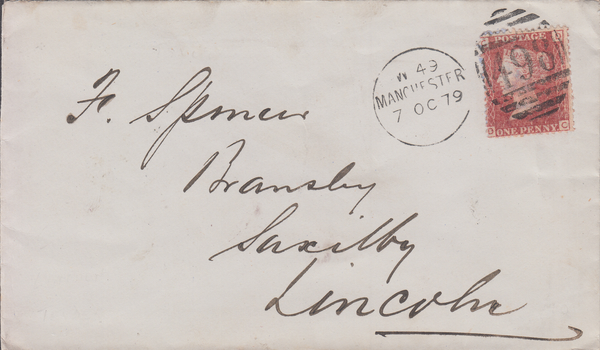 F. Spencer
Bransby
Saxilby
Lincoln
W 49
MANCHESTER
7 OC 79
POSTAGE
498
ONE PENNY